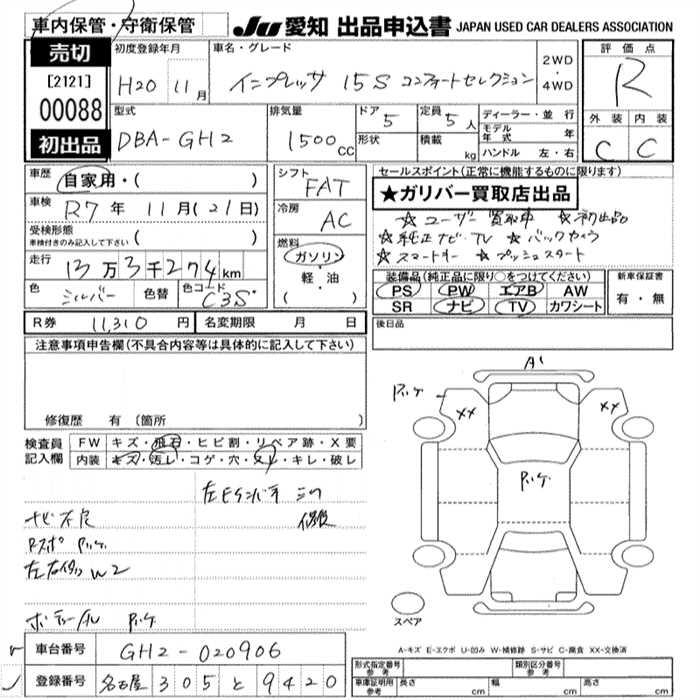 車内保管・守衛保管
JU 愛知 出品申込書 JAPAN USED CAR DEALERS ASSOCIATION
売切
[2121]
00088
初出品
初度登録年月
H20 11月
車名・グレード
インプレッサ 15S コンフォートセレクション
2WD・4WD
評価点
R
型式
DBA-GH2
排気量
1500cc
ドア
5
形状
定員
5人
積載
kg
ディーラー・並行
モデル年式 年
ハンドル 左・右
外装 内装
C C
車歴
自家用・( )
車検
R7年 11月(21日)
受検形態
車検付きのみ記入して下さい ( )
走行
13万3千274km
色
シルバー
色替
色コード
C3S
シフト
FAT
冷房
AC
燃料
ガソリン
軽・油
( )
セールスポイント(正常に機能するものに限ります)
★ガリバー買取店出品
☆ユーザー買取車 ☆初出品
☆純正ナビ・TV ☆バックカメラ
☆スマートキー ☆プッシュスタート
装備品(純正品に限り○をつけてください)
PS PW エアB AW
SR ナビ TV カワシート
新車保証書
有・無
R券 11,310円
名変期限 月 日
後日品
注意事項申告欄(不具合内容等は具体的に記入して下さい)
修復歴 有 (箇所 )
検査員記入欄
FW キズ・飛石・ヒビ割・リペア跡・X要
内装 キズ・汚レ・コゲ・穴・スレ・キレ・破レ
ナビ不良
W2
A1
XX
XX
スペア
A-キズ E-エクボ U-凹み W-補修跡 S-サビ C-腐食 XX-交換済
車台番号 GH2-020906
登録番号 名古屋 305 と 9420
形式指定番号 参考
類別区分番号 参考
車庫証明用 参考 長さ cm 幅 cm 高さ cm